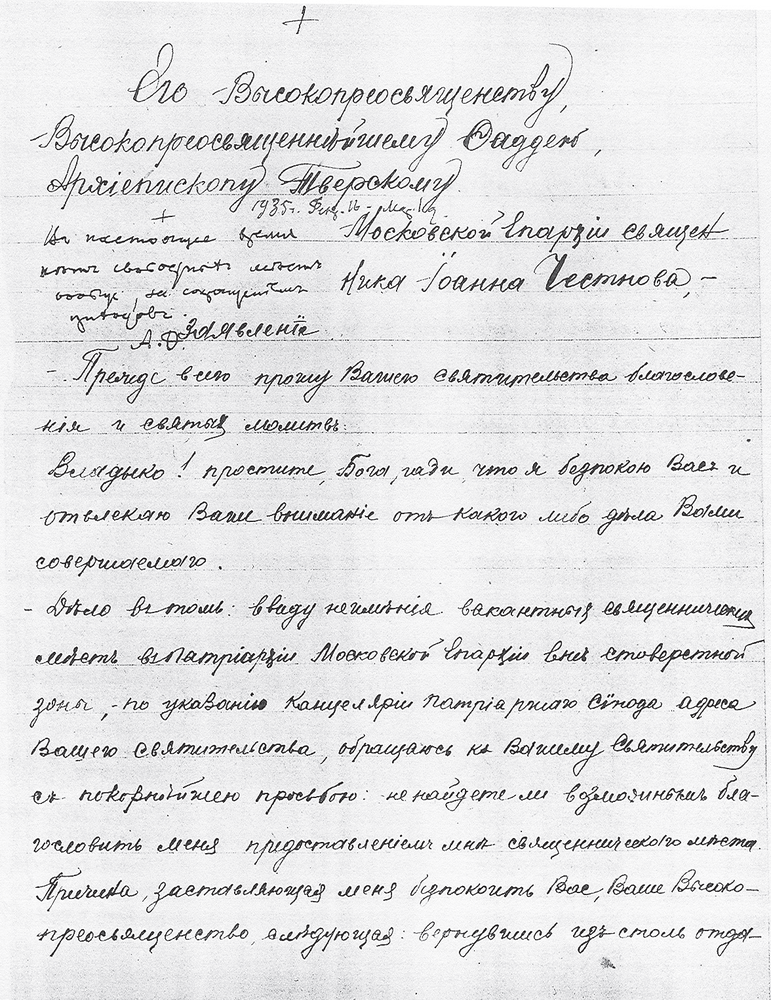 Его Высокопреосвященству,
Высокопреосвященнѣйшему Фаддею,
Архіепископу Тверскому
1935г.
Въ настоящее время
Московской Епархіи священ
нѣтъ свободныхъ мѣстъ
ника Іоанна Честнова, –
вообще, за сокращеніемъ
А.Ѳ.
Заявленіе
– Прежде всего прошу Вашего святительства благослове-
нія и святых молитвъ.
Владыко! простите, Бога, ради, что я безпокою Васъ и
отвлекаю Ваше вниманіе отъ какого либо дѣла Вами
совершаемаго.
– Дѣло въ томъ: ввиду неимѣнія вакантных священнических
мѣстъ въ Патріархіи Московской Епархіи внѣ стоверстной
зоны, – по указанію Канцеляріи Патріаршаго Сѵнода адреса
Вашего святительства, обращаюсь къ Вашему Святительству
съ покорнѣйшею просьбою: не найдете ли возможнымъ бла-
гословить меня предоставленіемъ мнѣ священнического мѣста.
Причина, заставляющая меня безпокоить Вас, Ваше Высоко-
преосвященство, слѣдующая: вернувшись изъ столь отда-